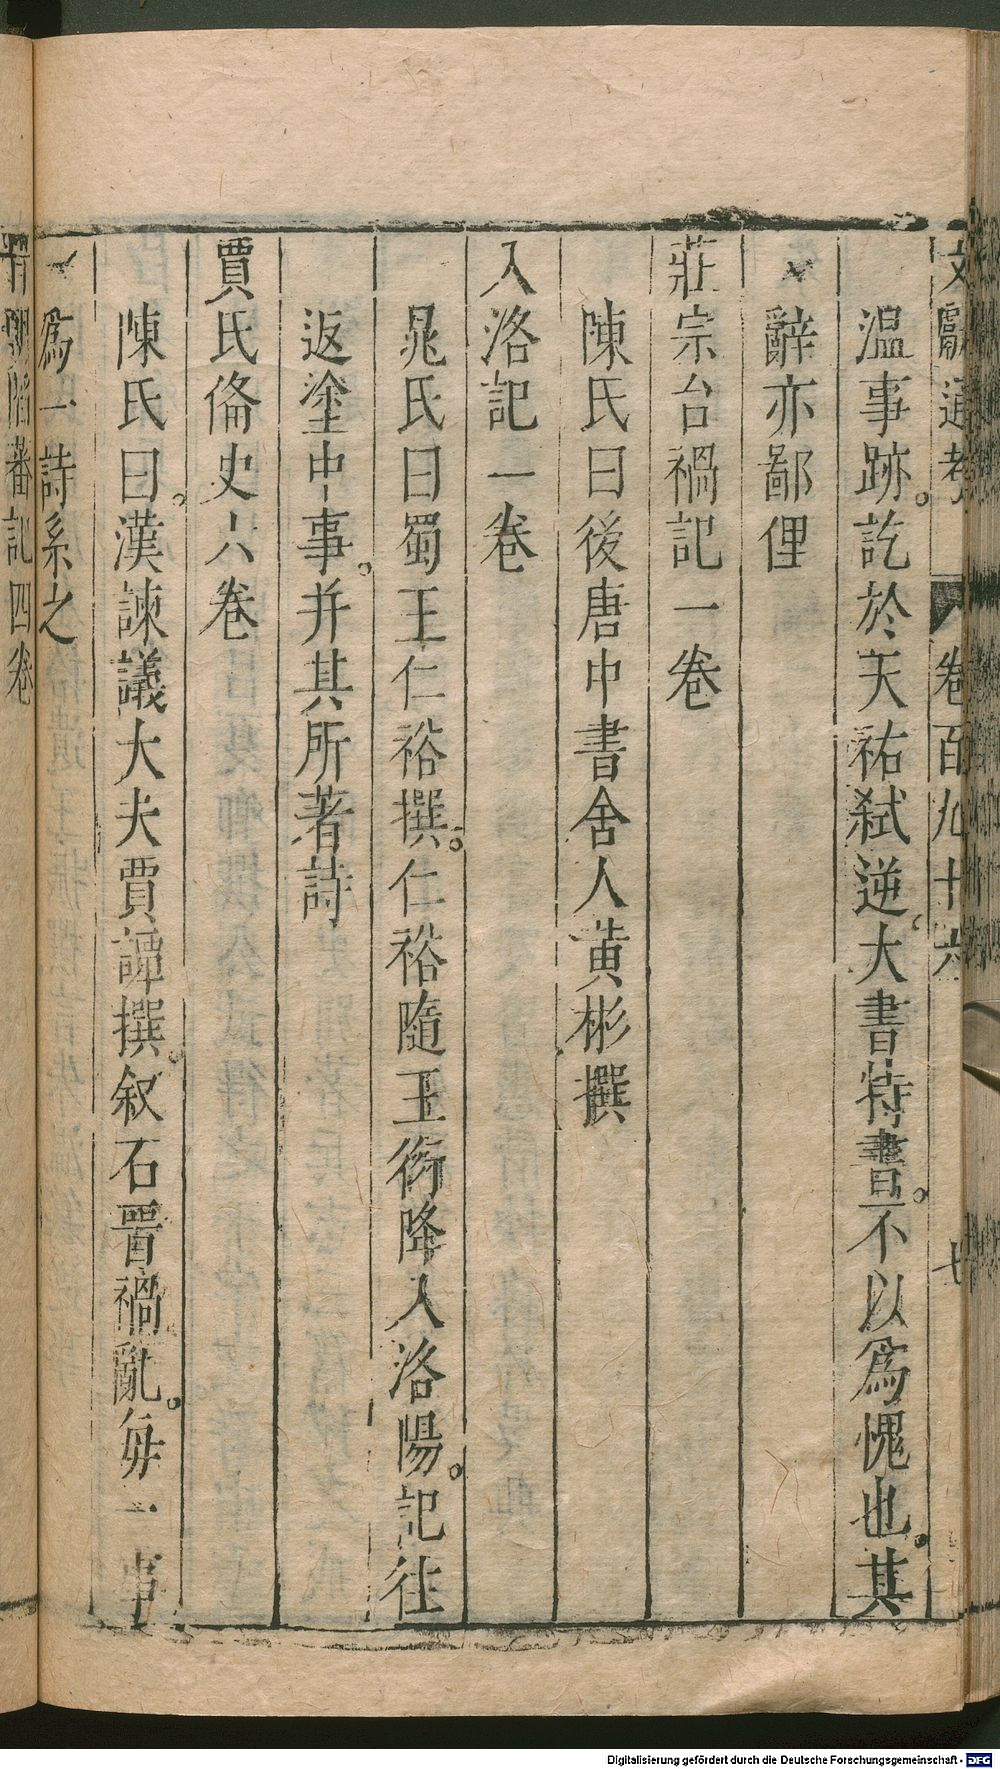 文獻通考 卷百九十六 七
溫事跡。訖於天祐弑逆。大書特書。不以爲愧也。其
辭亦鄙俚
莊宗台禍記一卷
陳氏曰後唐中書舍人黃彬撰
入洛記一卷
晁氏曰蜀王仁裕撰。仁裕隨王衍降入洛陽。記往
返塗中事。并其所著詩
賈氏備史六卷
陳氏曰。漢諫議大夫賈譚撰。叙石晋禍亂。每一事
爲一詩系之
晋朝陷蕃記四卷
Digitalisierung gefördert durch die Deutsche Forschungsgemeinschaft - DFG